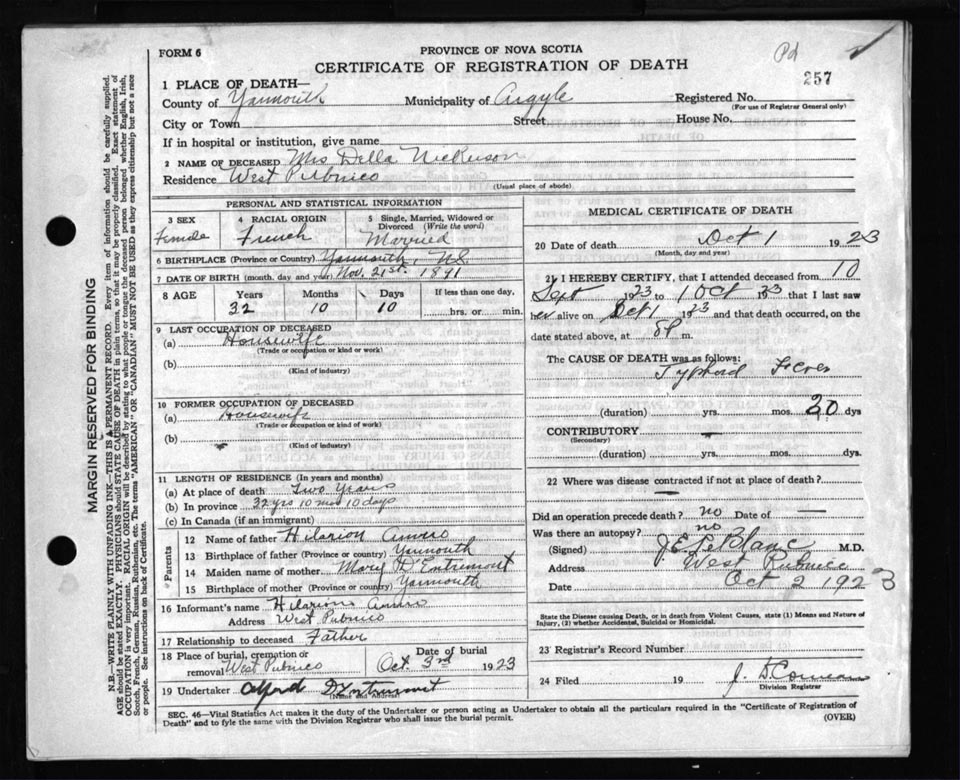 Pd
FORM 6
PROVINCE OF NOVA SCOTIA
CERTIFICATE OF REGISTRATION OF DEATH
257
1 PLACE OF DEATH—
County of Yarmouth Municipality of Argyle Registered No.
(For use of Registrar General only)
City or Town Street House No.
If in hospital or institution, give name
2 NAME OF DECEASED Mrs Della Nickerson
Residence West Pubnico
(Usual place of abode)
PERSONAL AND STATISTICAL INFORMATION
3 SEX
Female
4 RACIAL ORIGIN
French
5 Single, Married, Widowed or
Divorced (Write the word)
Married
6 BIRTHPLACE (Province or Country) Yarmouth, NS
7 DATE OF BIRTH (month, day and year) Nov. 21st. 1891
8 AGE
Years Months Days
32 10 10
If less than one day,
hrs. or min.
9 LAST OCCUPATION OF DECEASED
(a) Housewife
(Trade or occupation or kind or work)
(b)
(Kind of industry)
10 FORMER OCCUPATION OF DECEASED
(a) Housewife
(Trade or occupation or kind or work)
(b)
(Kind of industry)
11 LENGTH OF RESIDENCE (In years and months)
(a) At place of death Two Years
(b) In province 32 yrs 10 mos 10 days
(c) In Canada (if an immigrant)
Parents
12 Name of father Hilarion Amiro
13 Birthplace of father (Province or country) Yarmouth
14 Maiden name of mother Mary D'Entremont
15 Birthplace of mother (Province or country) Yarmouth
16 Informant's name Hilarion Amiro
Address West Pubnico
17 Relationship to deceased Father
18 Place of burial, cremation or
removal West Pubnico
Date of burial
Oct. 3rd 1923
19 Undertaker Alfred D'Entremont
(Name and Address)
MEDICAL CERTIFICATE OF DEATH
20 Date of death Oct 1 1923
(Month, day and year)
21 I HEREBY CERTIFY, that I attended deceased from 10
Sept 1923 to 1 Oct 1923 that I last saw
her alive on Oct 1 1923 and that death occurred, on
date stated above, at 8P m.
The CAUSE OF DEATH was as follows:
Typhoid Fever
(duration) yrs. mos. 20 dys
CONTRIBUTORY —
(Secondary)
(duration) yrs. mos. dys
22 Where was disease contracted if not at place of death?
—
Did an operation precede death? no Date of —
Was there an autopsy? no
(Signed) J. E. LeBlanc M.D.
Address West Pubnico
Date Oct 2 1923
State the Disease causing Death, or in death from Violent Causes, state (1) Means and Nature of
Injury, (2) whether Accidental, Suicidal or Homicidal.
23 Registrar's Record Number
24 Filed 19 J. D. Comeau
Division Registrar
SEC. 46—Vital Statistics Act makes it the duty of the Undertaker or person acting as Undertaker to obtain all the particulars required in the "Certificate of Registration of
Death" and to fyle the same with the Division Registrar who shall issue the burial permit.
(OVER)
MARGIN RESERVED FOR BINDING
N.B.—WRITE PLAINLY WITH UNFADING INK—THIS IS A PERMANENT RECORD. Every item of information should be carefully supplied.
AGE should be stated EXACTLY. PHYSICIANS should STATE CAUSE OF DEATH in plain terms, so that it may be properly classified. Exact statement of
OCCUPATION is very important. RACIAL ORIGIN will be described by stating to what people or tongue the deceased person belonged whether English, Irish,
Scotch, French, German, Russian, Ruthenian, etc. The terms "AMERICAN" OR "CANADIAN" MUST NOT BE USED as they express citizenship but not a race
or people. See instructions on back of Certificate.